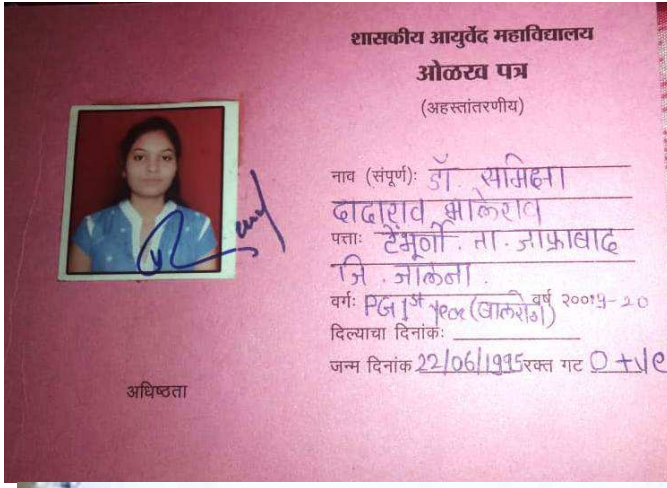 शासकीय आयुर्वेद महाविद्यालय
ओळख पत्र
(अहस्तांतरणीय)
नाव (संपूर्ण): डॉ. समिक्षा
दादाराव भालेराव
पत्ता: टेंभूर्णी. ता. जाफ्राबाद
जि. जालना.
वर्ग: PG 1st year (बालरोग) वर्ष २००१9-20
दिल्याचा दिनांक:
जन्म दिनांक 22/06/1995 रक्त गट O +ve
अधिष्ठता